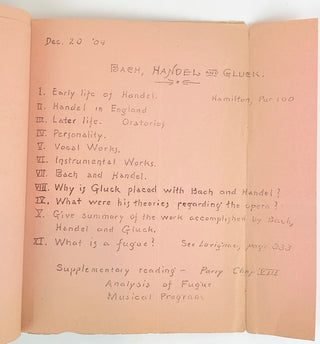 Dec. 20 '04
BACH, HANDEL AND GLUCK.
I. Early life of Handel. Hamilton, Par 100
II. Handel in England
III. Later life. Oratorios
IV. Personality.
V. Vocal Works.
VI. Instrumental Works.
VII. Bach and Handel.
VIII. Why is Gluck placed with Bach and Handel?
IX. What were his theories regarding the opera?
X. Give summary of the work accomplished by Bach,
Handel and Gluck.
XI. What is a fugue? See Lavignac, page 233
Supplementary reading - Parry Chap VIII
Analysis of Fugue
Musical Program